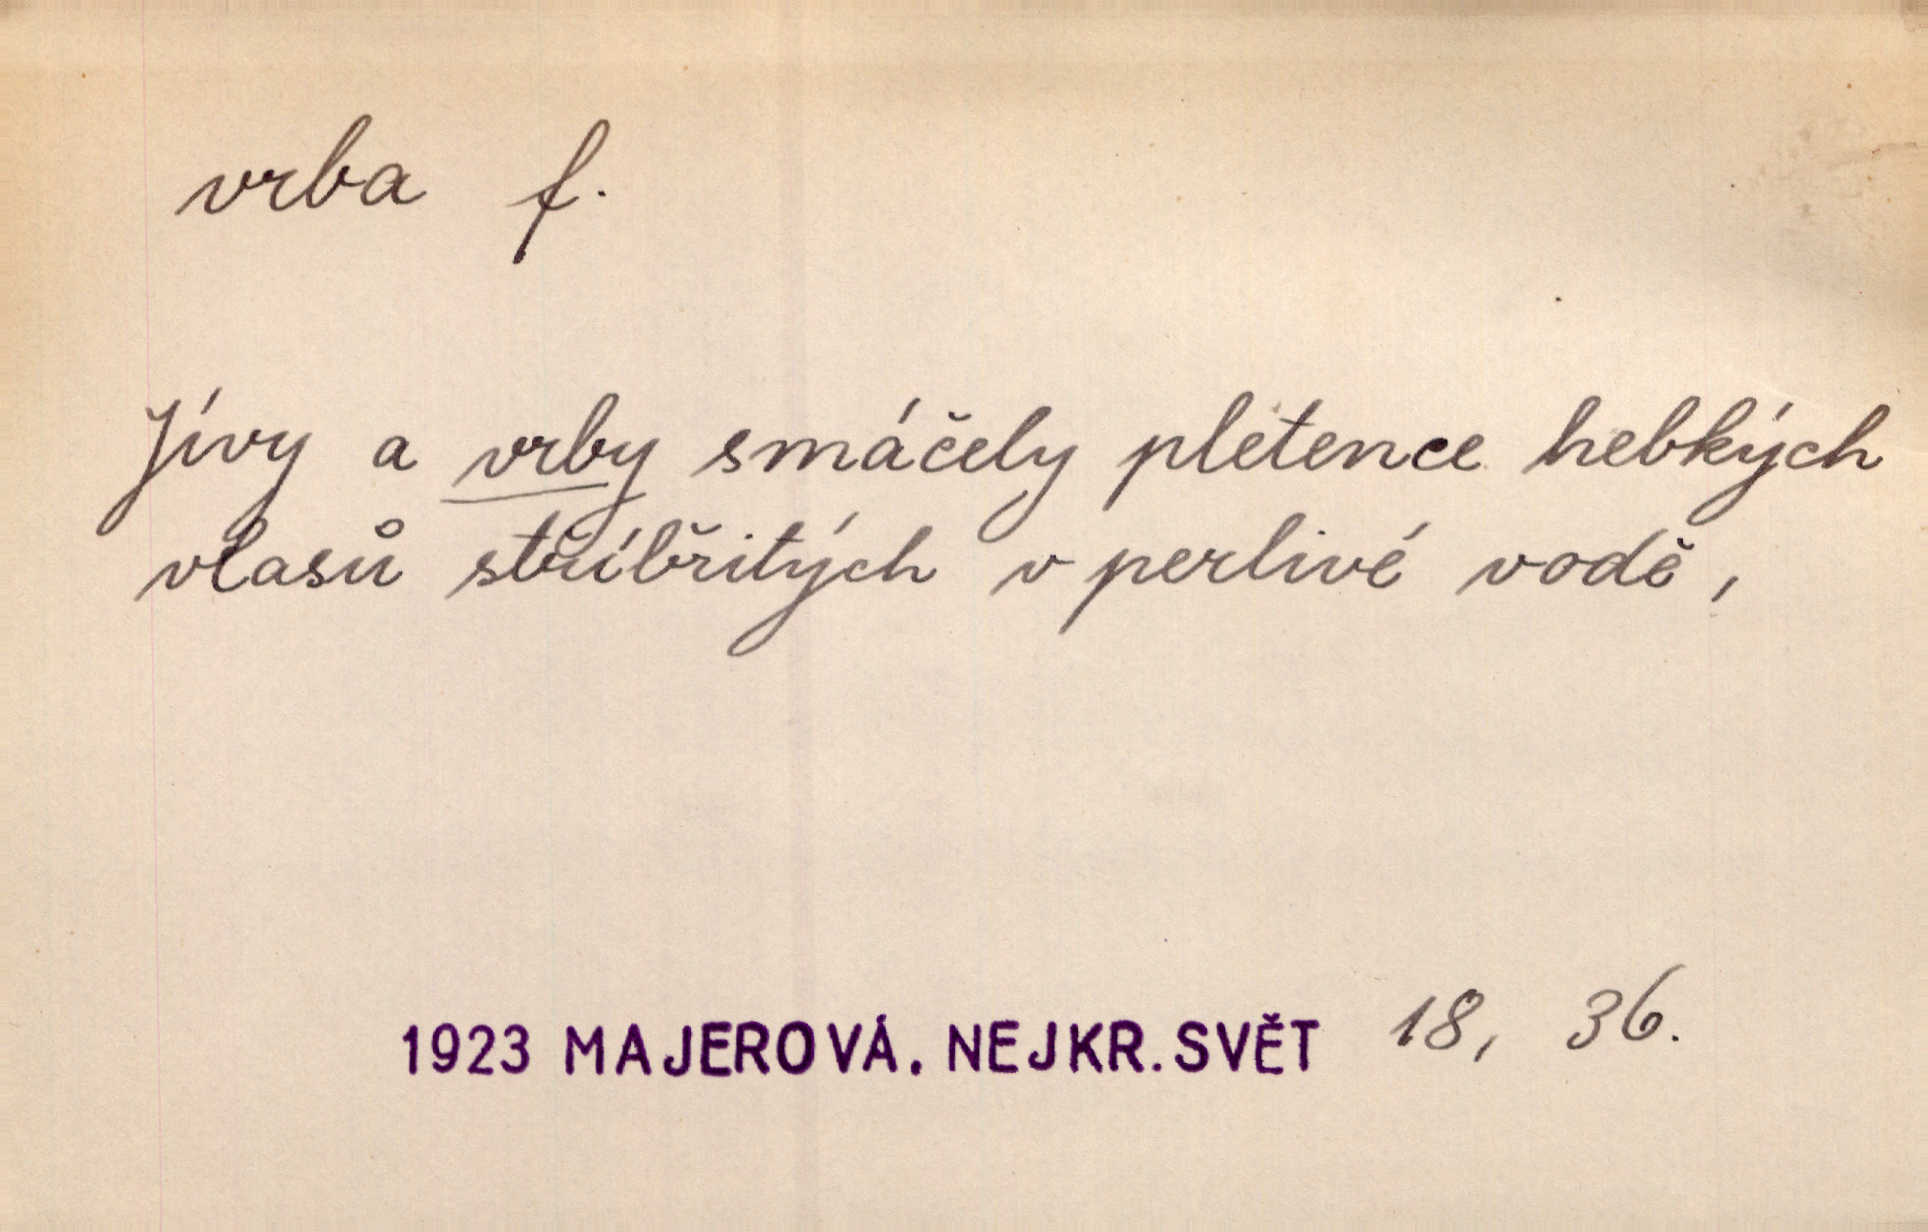 vrba f.
Jívy a vrby smáčely pletence hebkých
vlasů stříbřitých v perlivé vodě,
1923 MAJEROVÁ. NEJKR. SVĚT 18, 36.